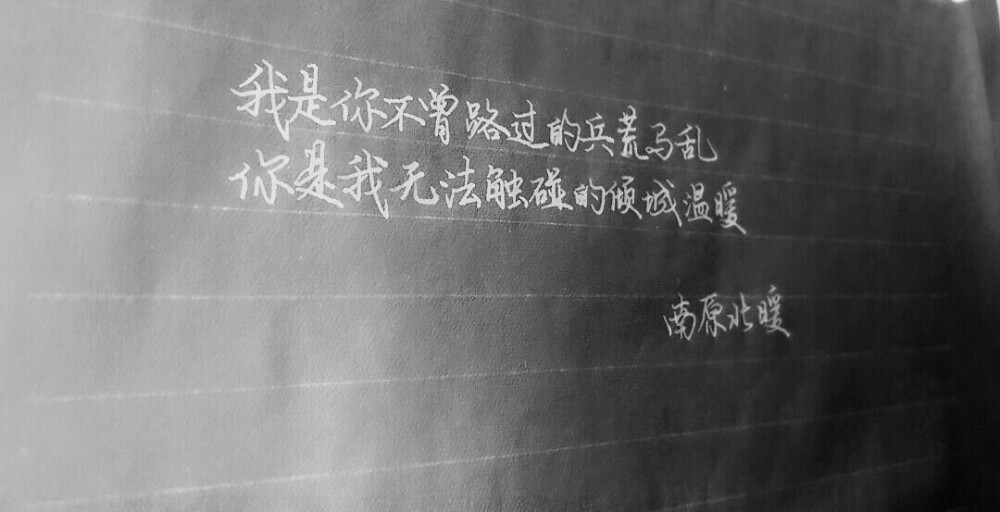 我是你不曾路过的兵荒马乱
你是我无法触碰的倾城温暖
南原北暖